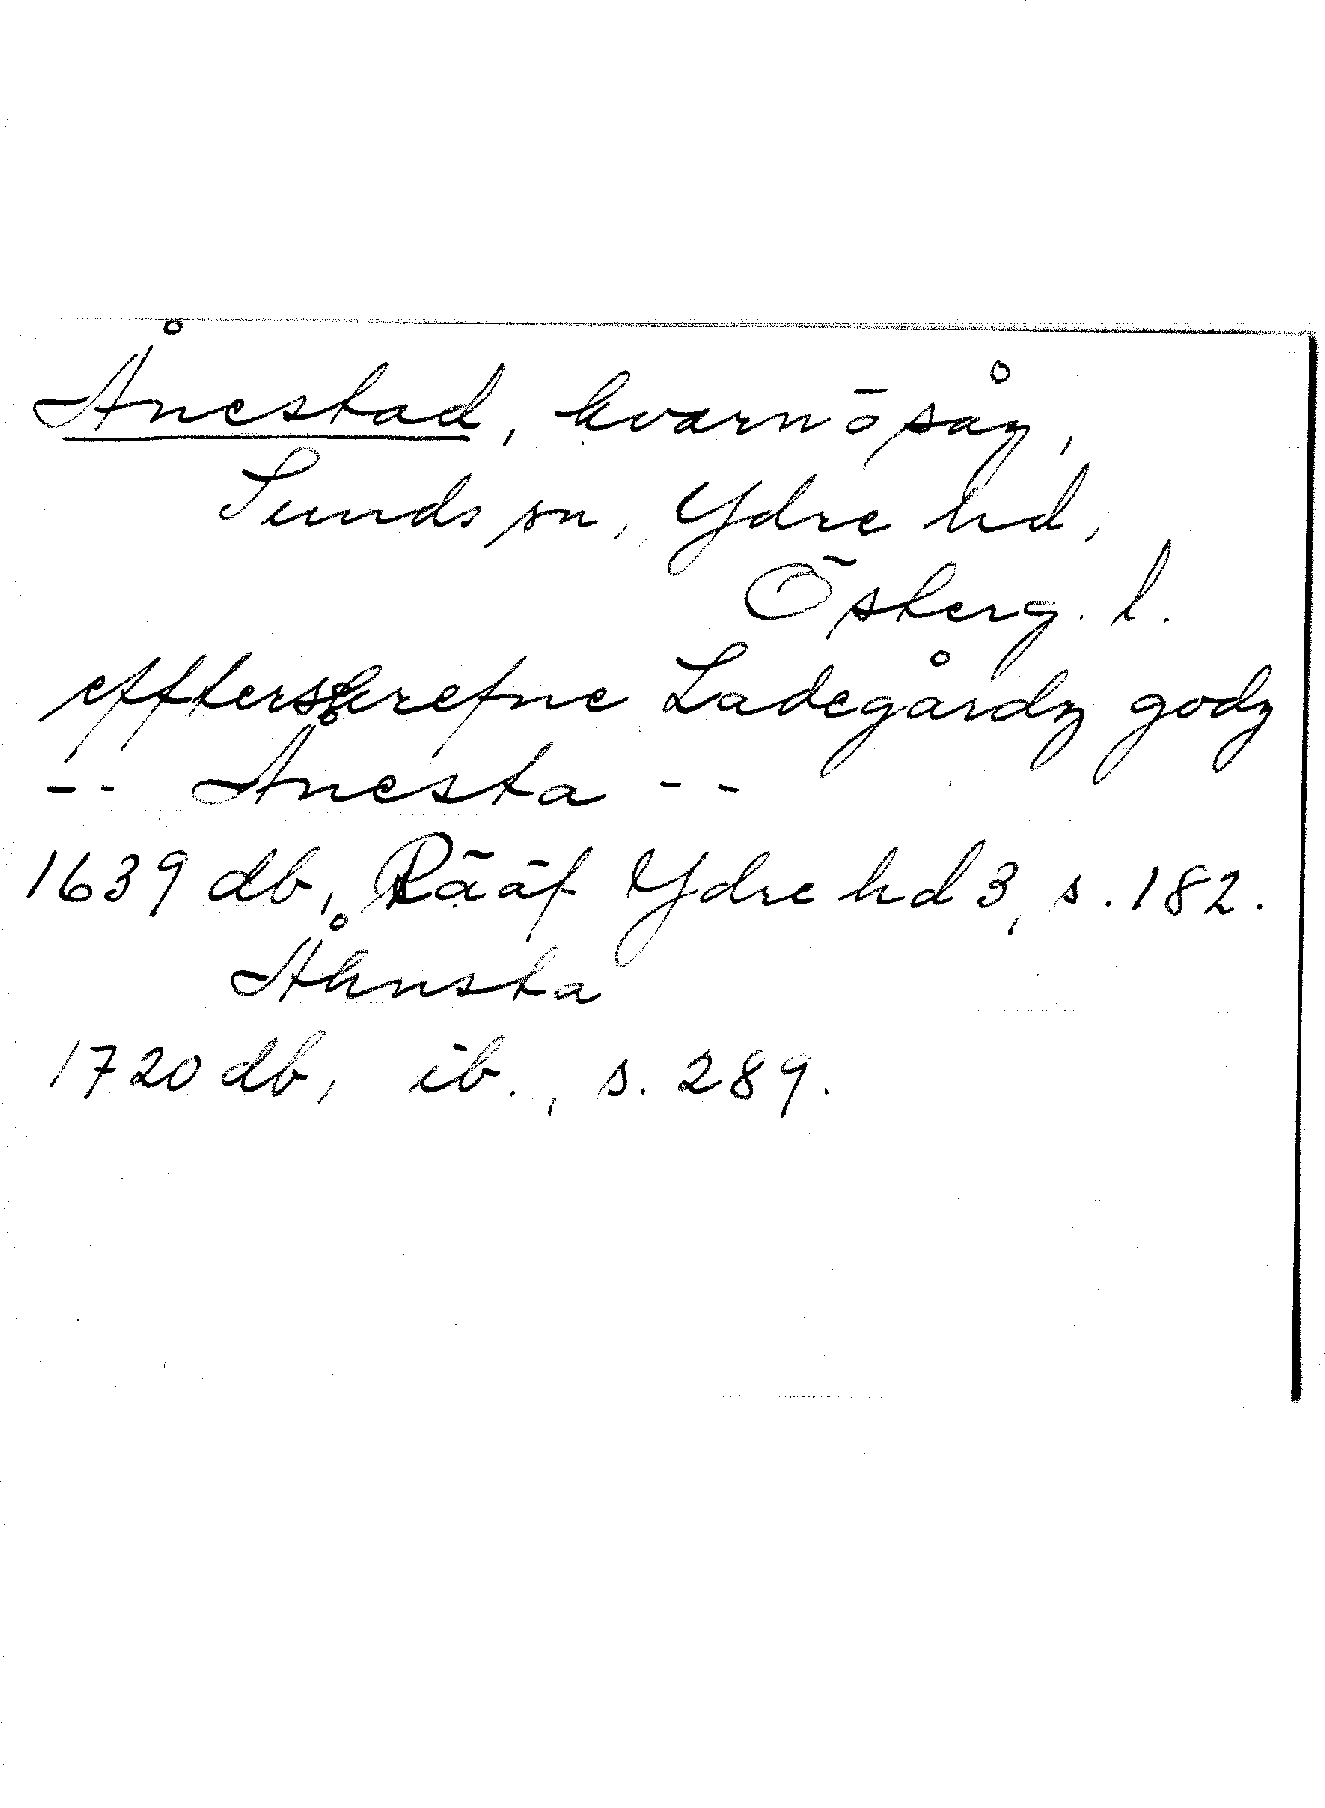 Ånestad, kvarn ö såg,
Sunds sn, Ydre hd,
Österg. l.
effterskrefne Ladegårdz godz
-- Ånesta --
1639 db, Rääf Ydre hd 3, s. 182.
Åhnsta
1720 db, ib., s. 289.